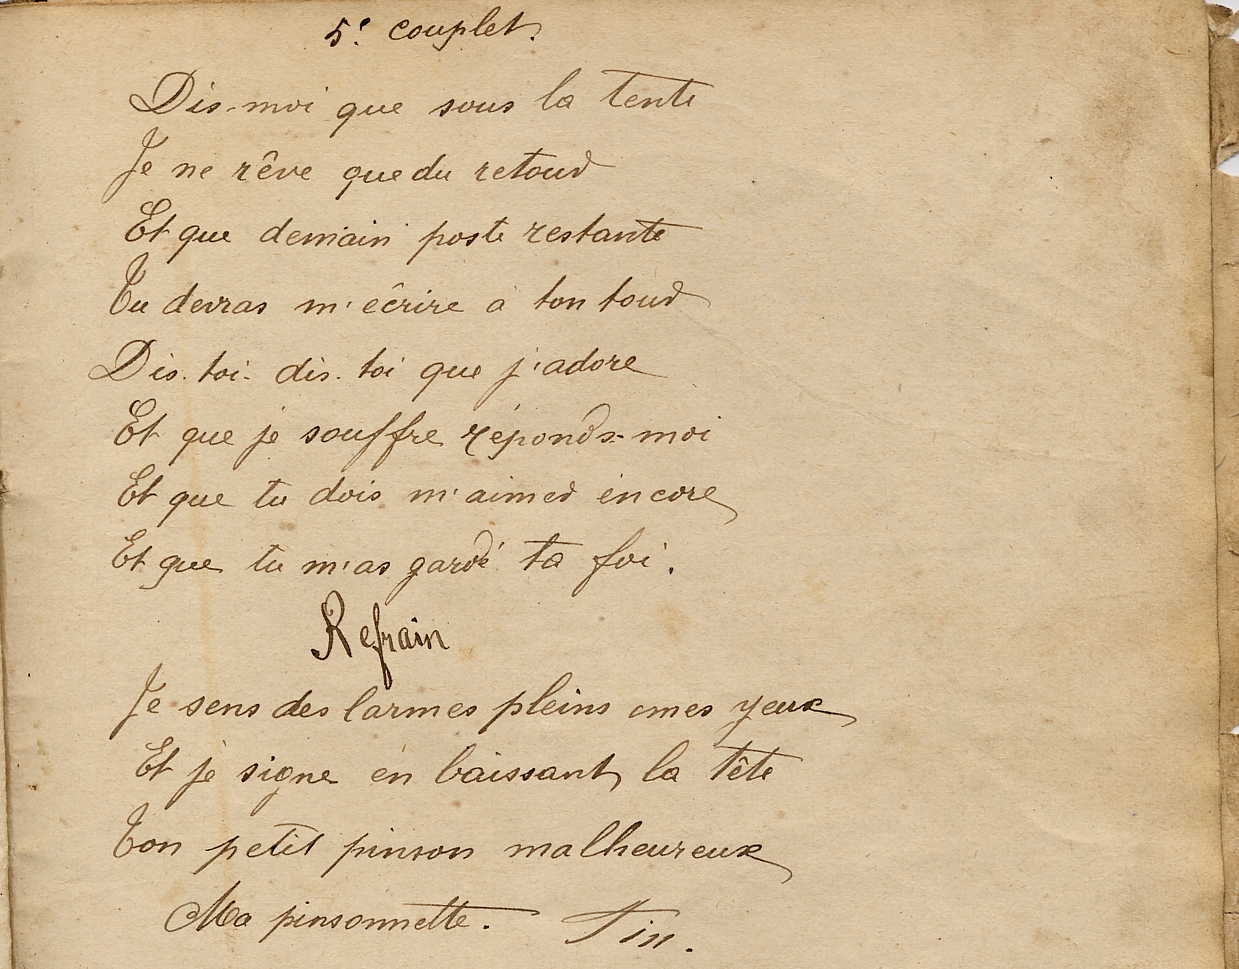 5e couplet.
Dis-moi que sous la tente
Je ne rêve que du retour
Et que demain poste restante
Tu devras m'écrire à ton tour
Dis-toi-dis-toi que j'adore
Et que je souffre réponds-moi
Et que tu dois m'aimer encore
Et que tu m'as gardé ta foi.
Refrain
Je sens des larmes pleins mes yeux
Et je signe en baissant la tête
Ton petit pinson malheureux
Ma pinsonnette. Fin.